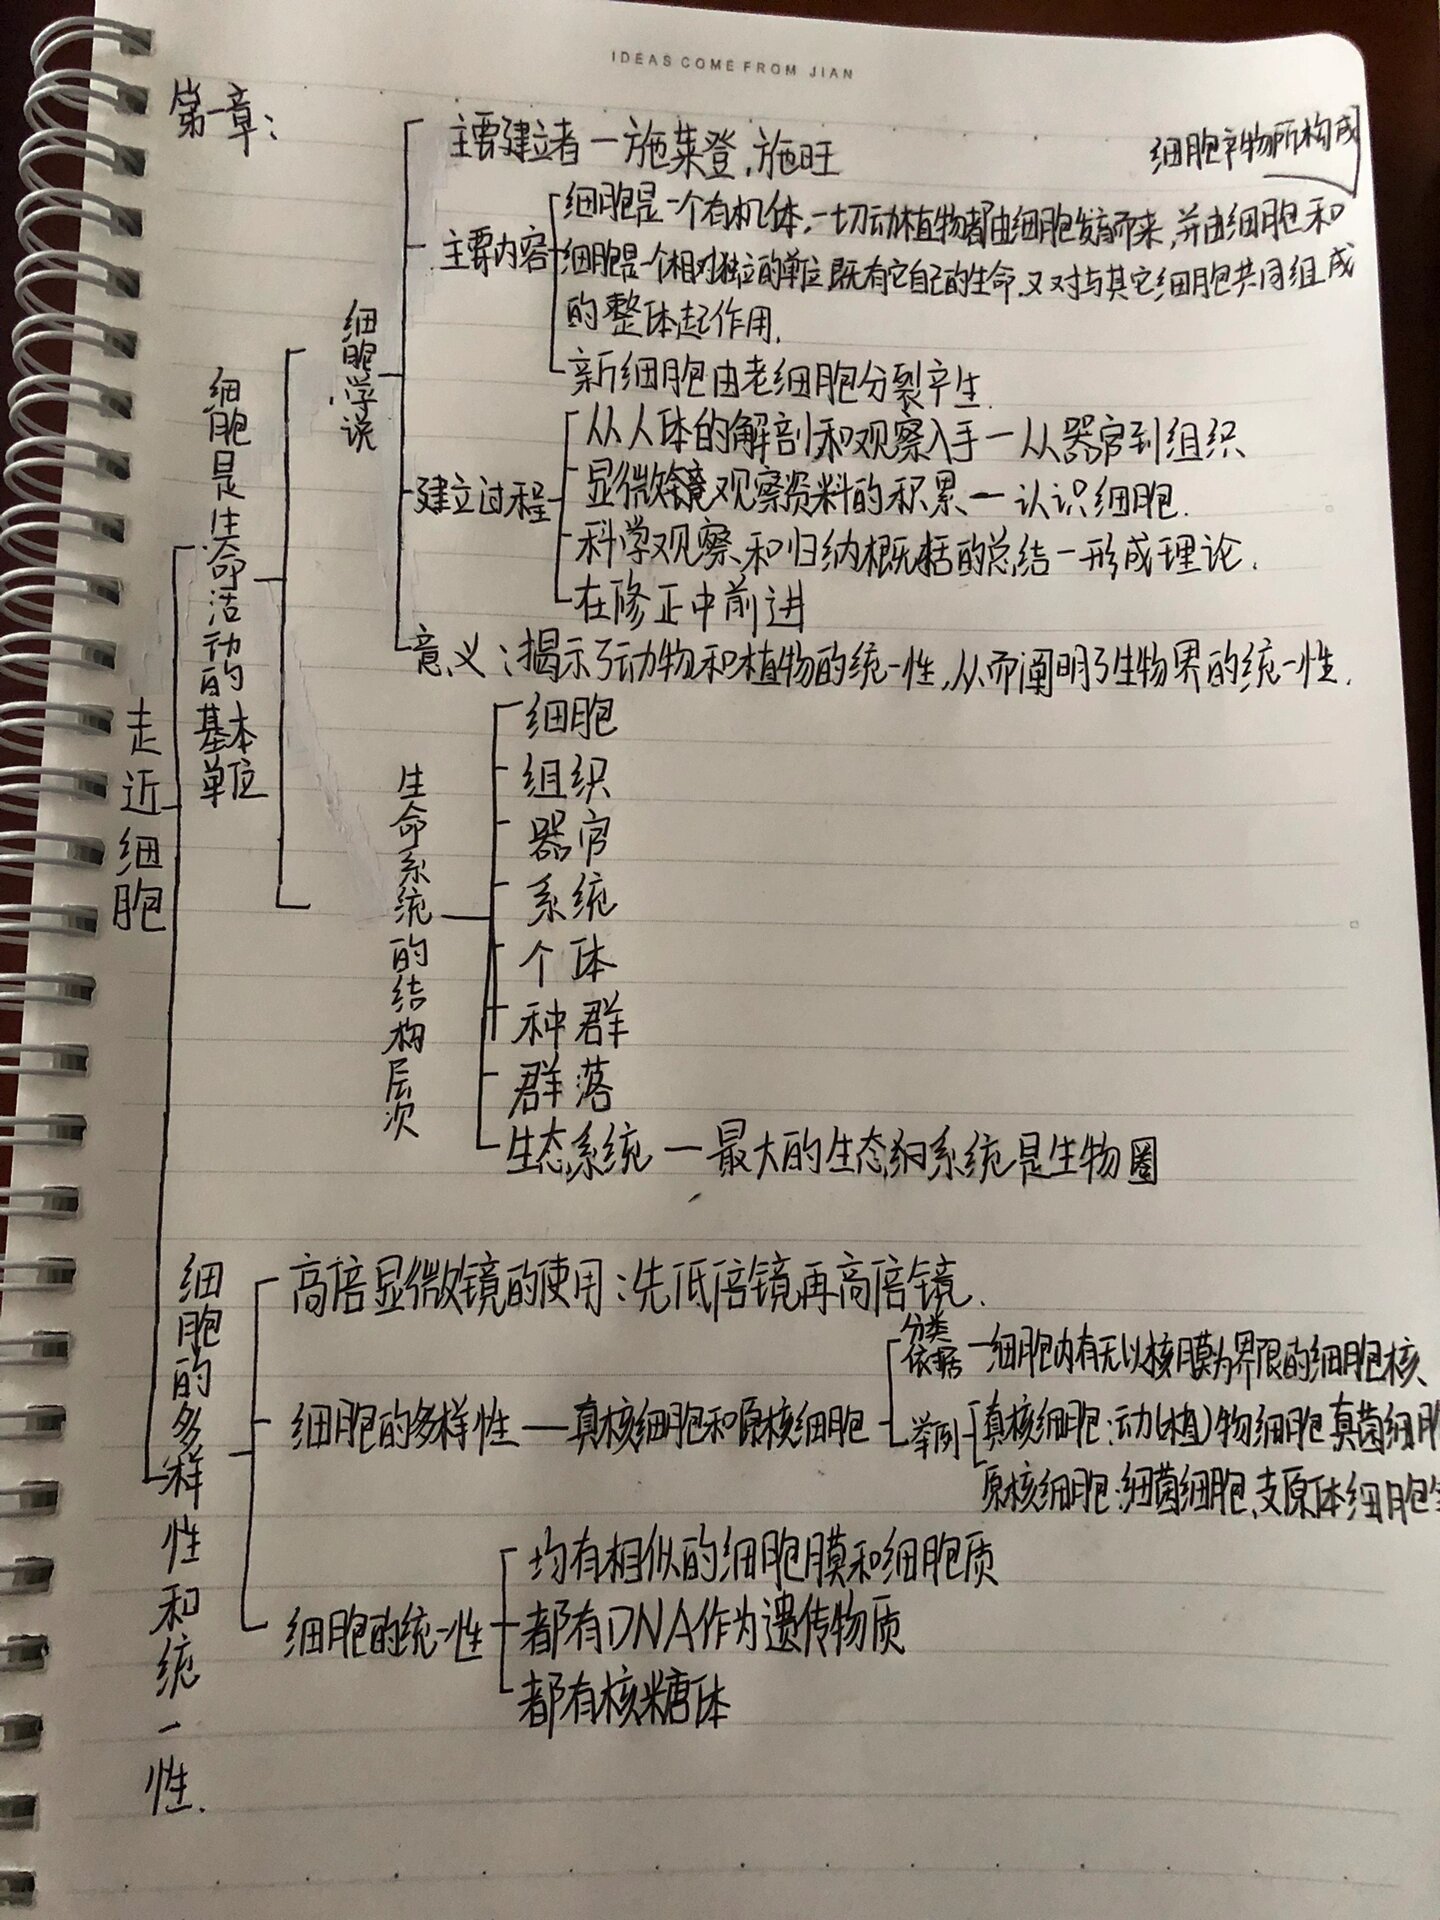 IDEAS COME FROM JIAN
第一章：
走近细胞
细胞是生命活动的基本单位
细胞学说
主要建立者－施莱登，施旺
主要内容
细胞产物所构成
细胞是一个有机体，一切动植物都由细胞发育而来，并由细胞和
细胞是一个相对独立的单位既有它自己的生命，又对与其它细胞共同组成
的整体起作用.
新细胞由老细胞分裂产生.
建立过程
从人体的解剖和观察入手－从器官到组织
显微镜观察资料的积累－认识细胞.
科学观察和归纳概括的总结－形成理论.
在修正中前进
意义：揭示了动物和植物的统一性，从而阐明了生物界的统一性.
生命系统的结构层次
细胞
组织
器官
系统
个体
种群
群落
生态系统－最大的生态系统是生物圈
细胞的多样性和统一性.
高倍显微镜的使用：先低倍镜再高倍镜.
细胞的多样性——真核细胞和原核细胞
分类
依据－细胞内有无以核膜为界限的细胞核
举例
真核细胞：动(植)物细胞 真菌细胞
原核细胞：细菌细胞，支原体细胞
细胞的统一性
均有相似的细胞膜和细胞质
都有DNA作为遗传物质
都有核糖体